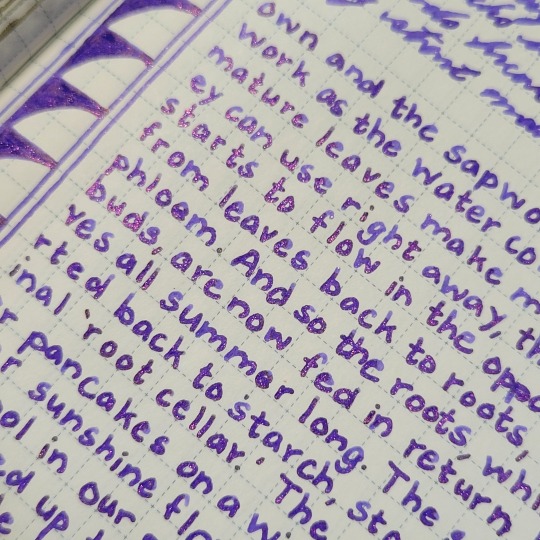 own and the sapwo
work as the water co
mature leaves make m
ey can use right away, th
starts to flow in the oppo
from leaves back to roots,
phloem. And so the roots, whi
buds, are now fed in return
yes all summer long. The
rted back to starch, sto
inal 'root cellar.' The
r pancakes on a w
r sunshine flo
ol in our
ed up t